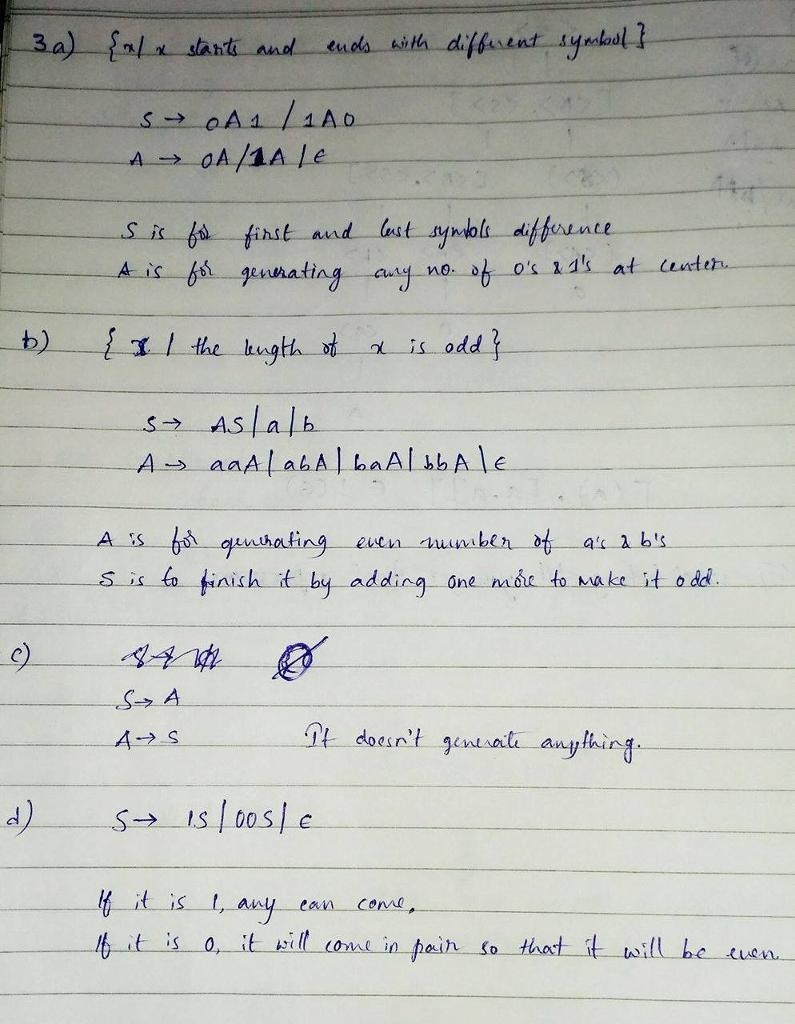 3a) {x/ x starts and ends with different symbol}
S → 0A1 / 1A0
A → 0A/1A/ϵ
S is for first and last symbols difference
A is for generating any no. of 0's & 1's at center.
b) {x / the length of x is odd}
S → AS/a/b
A → aaA/abA/baA/bbA/ϵ
A is for generating even number of a's & b's
S is to finish it by adding one more to make it odd.
c)
S → A
A → S It doesn't generate anything.
d) S → 1S/00S/ϵ
If it is 1, any can come,
If it is 0, it will come in pair so that it will be even